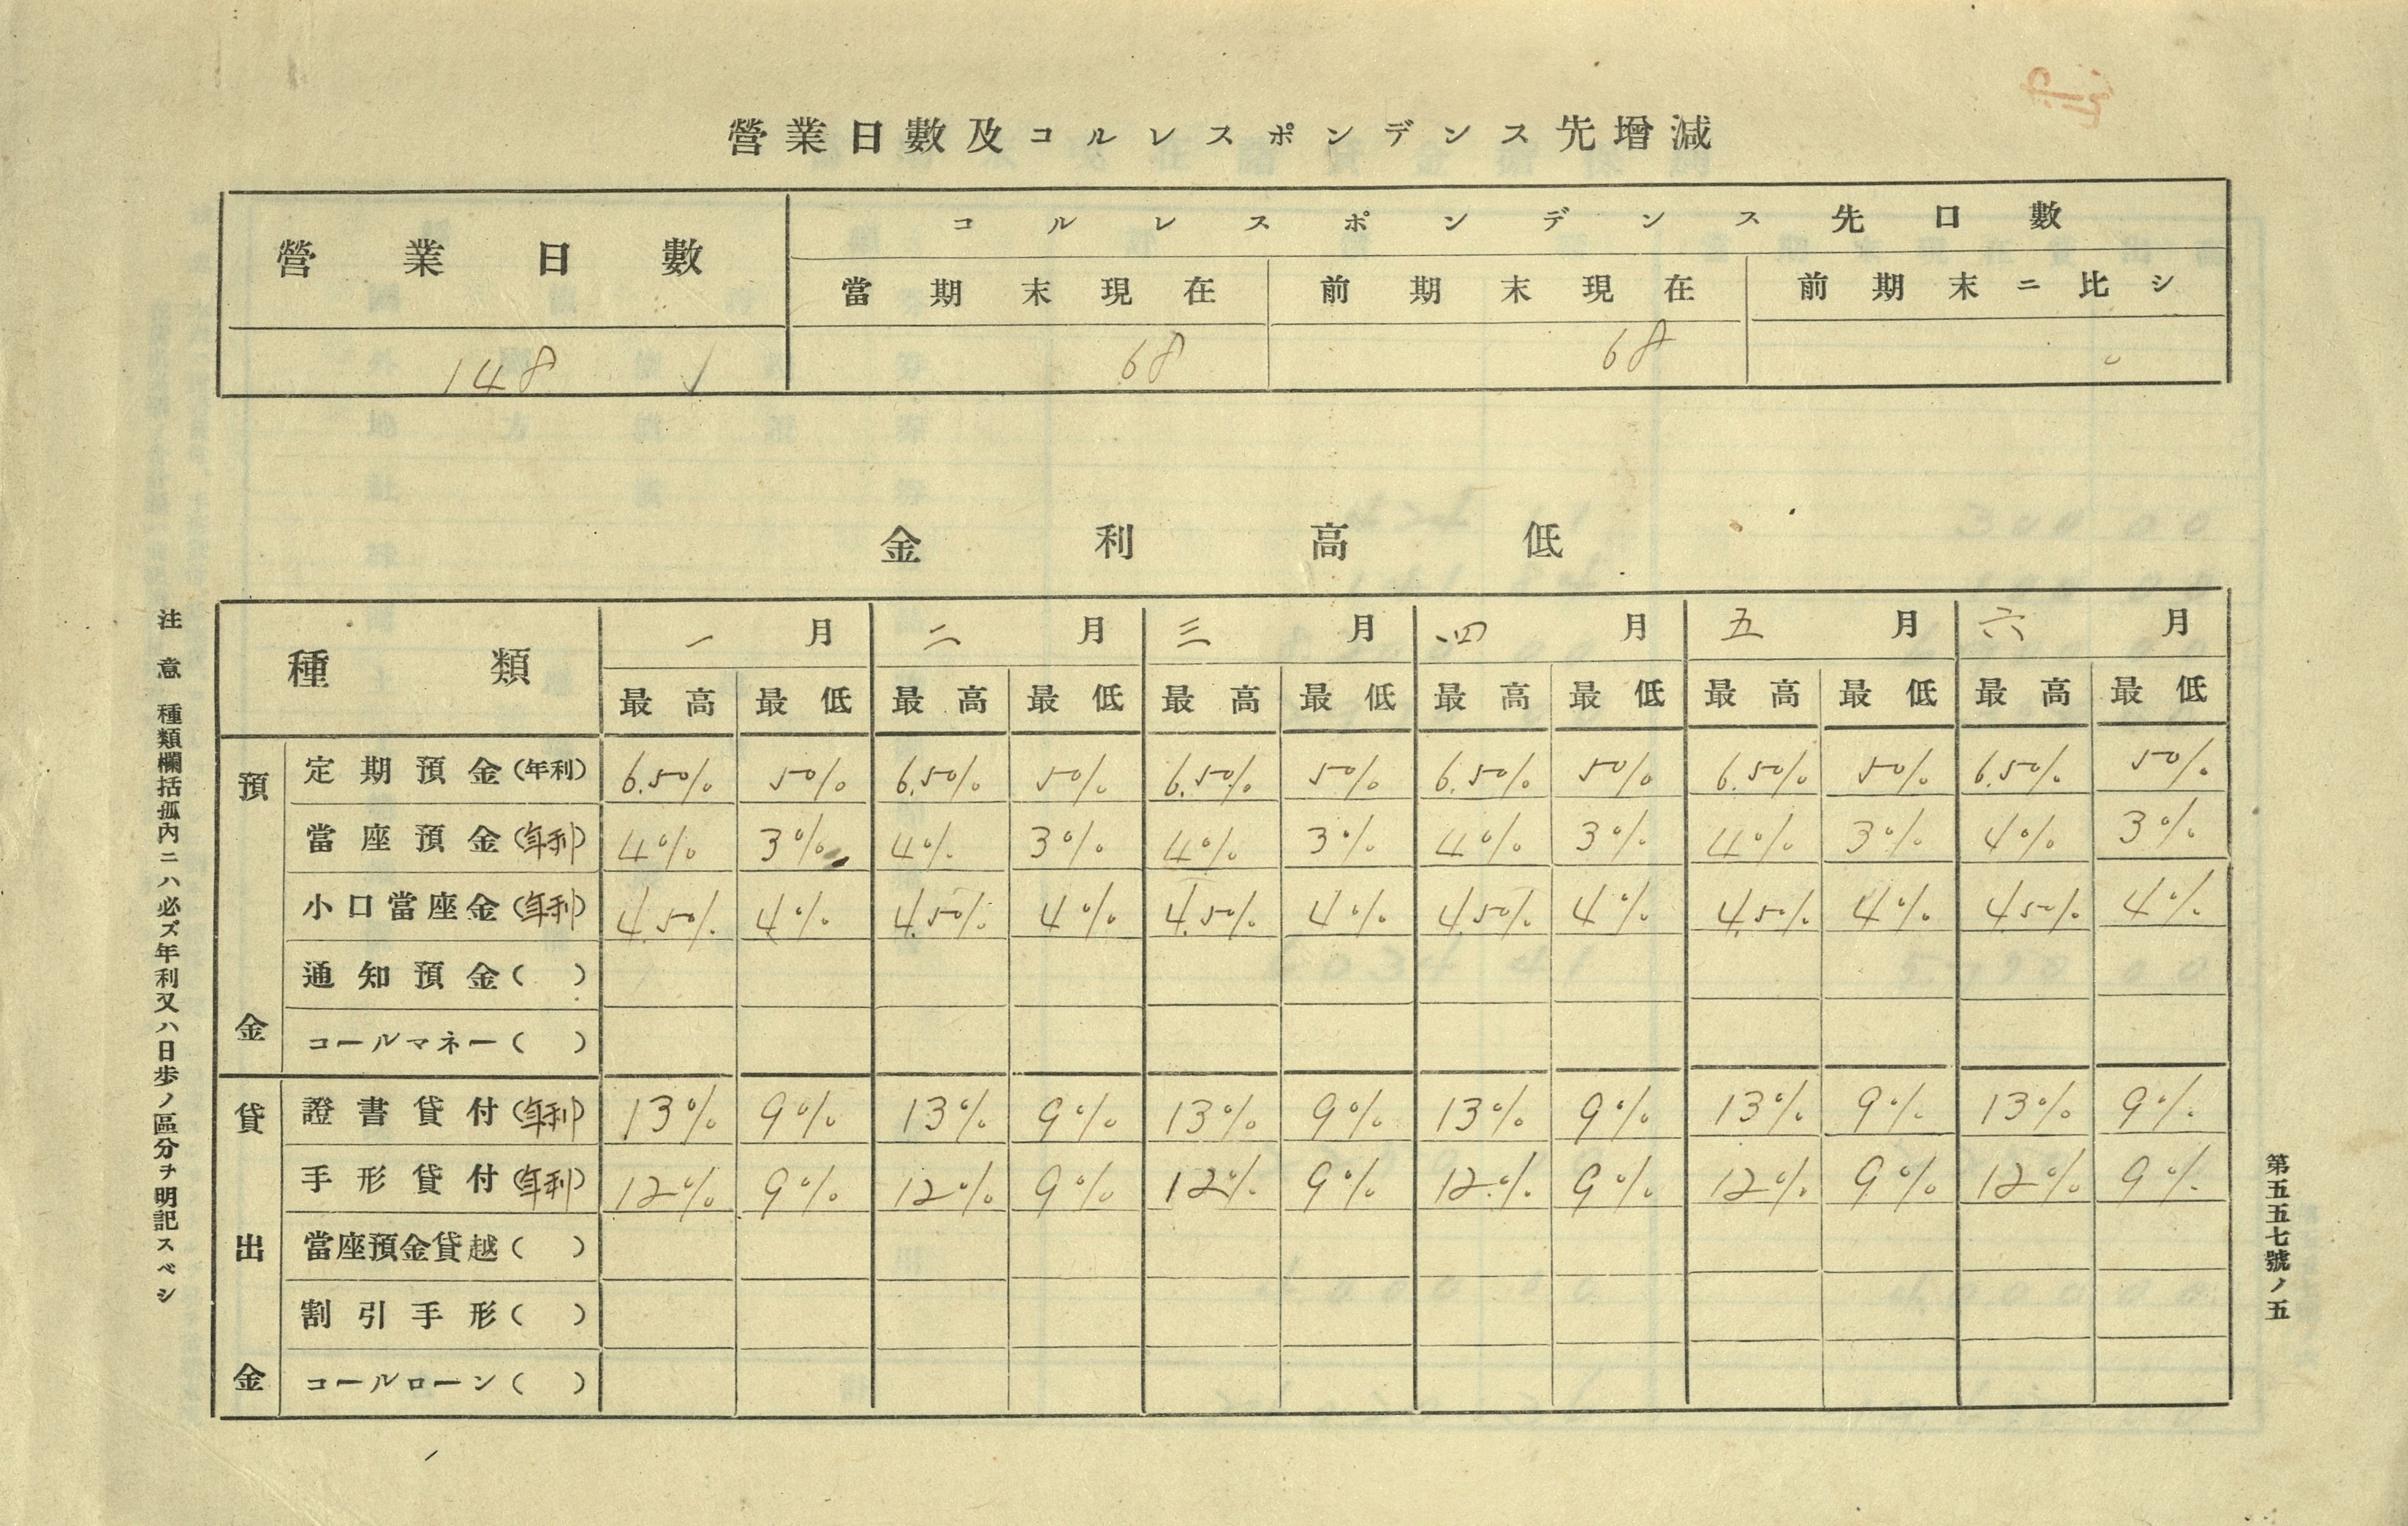 營業日數及コルレスポンデンス先增減
營業日數 コルレスポンデンス先口數
當期末現在 前期末現在 前期末ニ比シ
148 68 68 0
金利高低
種類 一月 二月 三月 四月 五月 六月
最高 最低 最高 最低 最高 最低 最高 最低 最高 最低 最高 最低
預金
定期預金(年利) 6.50% 5% 6.50% 5% 6.50% 5% 6.50% 5% 6.50% 5% 6.50% 5%
當座預金(年利) 4% 3% 4% 3% 4% 3% 4% 3% 4% 3% 4% 3%
小口當座金(年利) 4.50% 4% 4.50% 4% 4.50% 4% 4.50% 4% 4.50% 4% 4.50% 4%
通知預金( )
コールマネー( )
貸出金
證書貸付(年利) 13% 9% 13% 9% 13% 9% 13% 9% 13% 9% 13% 9%
手形貸付(年利) 12% 9% 12% 9% 12% 9% 12% 9% 12% 9% 12% 9%
當座預金貸越( )
割引手形( )
コールローン( )
注意 種類欄括孤內ニハ必ズ年利又ハ日歩ノ區分ヲ明記スベシ
第五五五七號ノ五